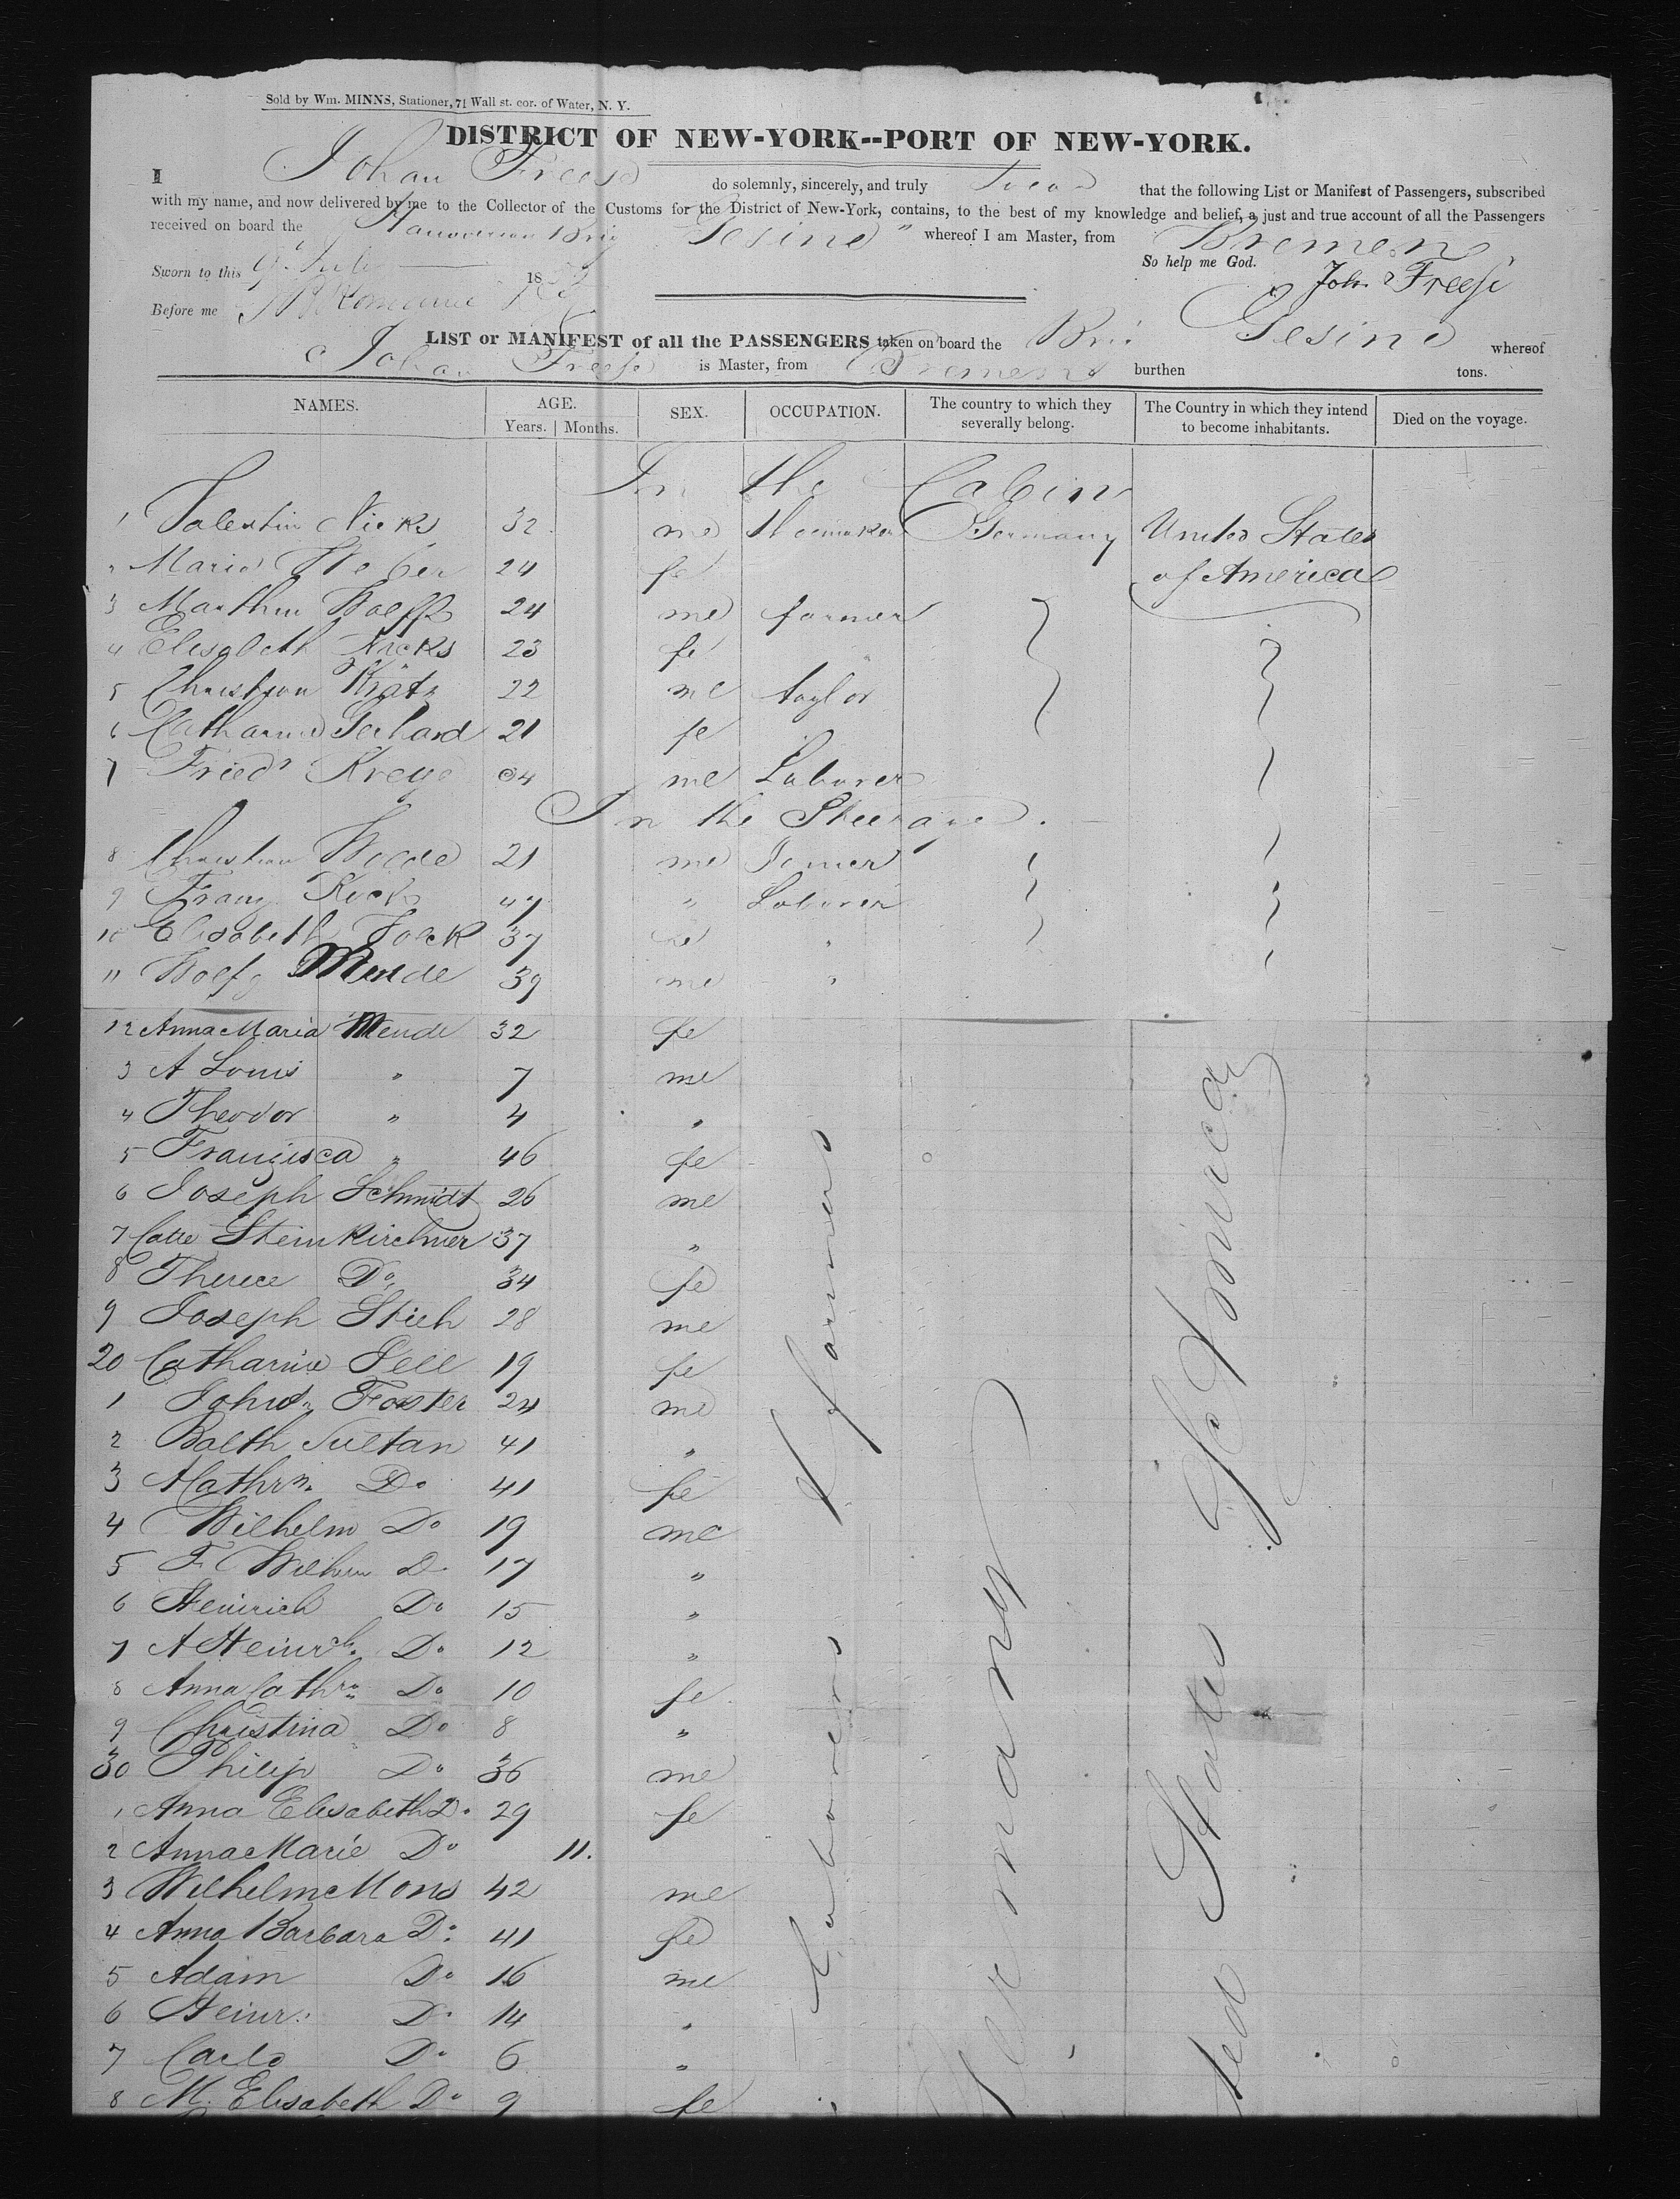 Sold by Wm. MINNS, Stationer, 71 Wall st. cor. of Water, N. Y.
DISTRICT OF NEW-YORK--PORT OF NEW-YORK.
I Johan Freese do solemnly, sincerely, and truly swear that the following List or Manifest of Passengers, subscribed
with my name, and now delivered by me to the Collector of the Customs for the District of New-York, contains, to the best of my knowledge and belief, a just and true account of all the Passengers
received on board the Hanoverian Brig "Gesine" whereof I am Master, from Bremen
So help me God.
Sworn to this 9 July 1853
Joh. Freese
Before me
LIST or MANIFEST of all the PASSENGERS taken on board the Gesine whereof
Johan Freese is Master, from Bremen burthen tons.
NAMES. AGE. SEX. OCCUPATION. The country to which they severally belong. The Country in which they intend to become inhabitants. Died on the voyage.
Years. Months.
In the Cabin
1 Valentin Nicks 32 me Shoemaker Germany United States
2 Maria Weber 24 fe of America
3 24 me farmer
4 Elisabeth Nicks 23 fe
5 Christian Kratz 22 me taylor
6 Gerhard 21 fe
7 Friedr Kreye 34 me Laborer
In the Steerage.
8 Christian 21 me Joiner
9 Franz 47 " Laborer
10 Elisabeth 37 "
11 Wolfg Mende 39 me "
12 Anna Maria Mende 32 fe
3 A Louis " 7 me
4 Theodor " 4 "
5 Franzisca " 46 fe
6 Joseph Schmidt 26 me
7 Steinkirchner 37 "
8 Therece Do 34 fe
9 Joseph Stich 28 me
20 Catharine 19 fe
1 Foster 24 me
2 Balth Sultan 41 "
3 Do 41 fe
4 Wilhelm Do 19 me
5 F Wilhem Do 17 "
6 Heinrich Do 15 "
7 A Heinrch. Do 12 "
8 Anna Cathr Do 10 fe
9 Christina Do 8 "
30 Philip Do 36 me
1 Anna Elisabeth Do 29 fe
2 Anna Marie Do 11.
3 Wilhelm Mons 42 me
4 Anna Barbara Do 41 fe
5 Adam Do 16 me
6 Heinr. Do 14 "
7 Do 6 "
8 M. Elisabeth Do 9 fe
Laborers & Farmers
Germany
ted States of America